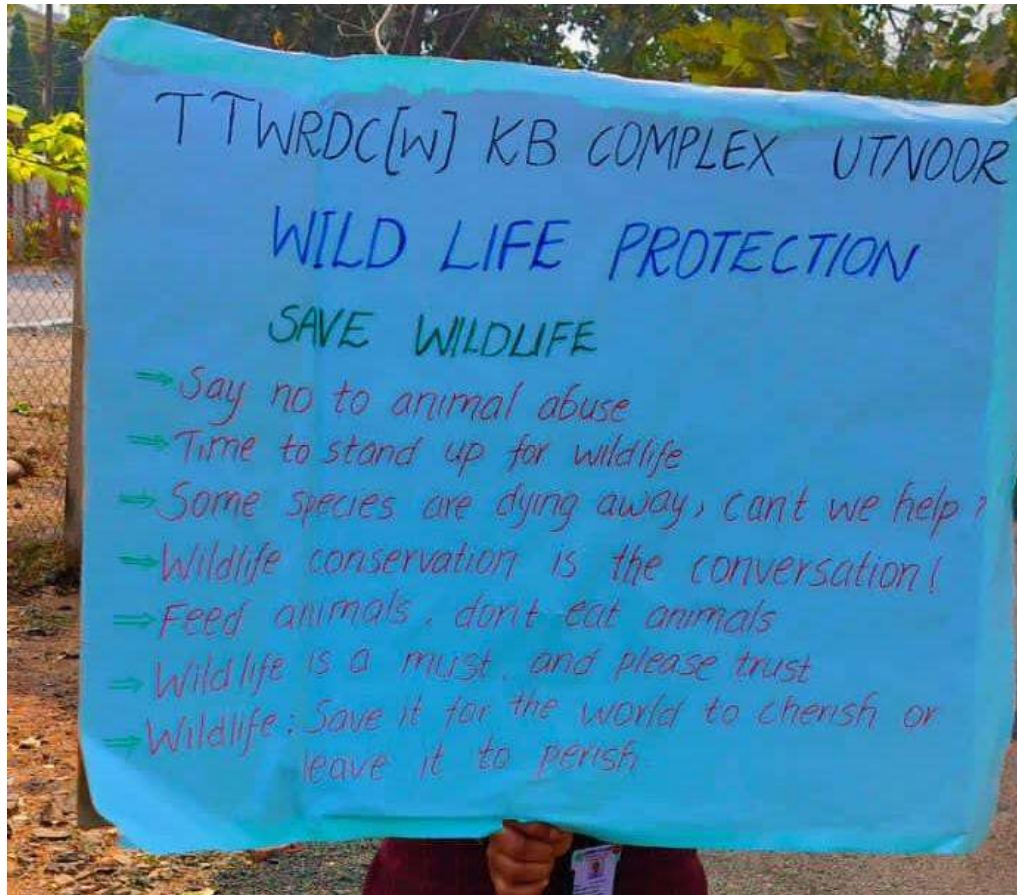 TTWRDC[W] KB COMPLEX UTNOOR
WILD LIFE PROTECTION
SAVE WILDLIFE
⇒ Say no to animal abuse
⇒ Time to stand up for wildlife
⇒ Some species are dying away, can't we help?
⇒ Wildlife conservation is the conversation!
⇒ Feed animals, don't eat animals
⇒ Wildlife is a must, and please trust
⇒ Wildlife: Save it for the world to cherish or
leave it to perish